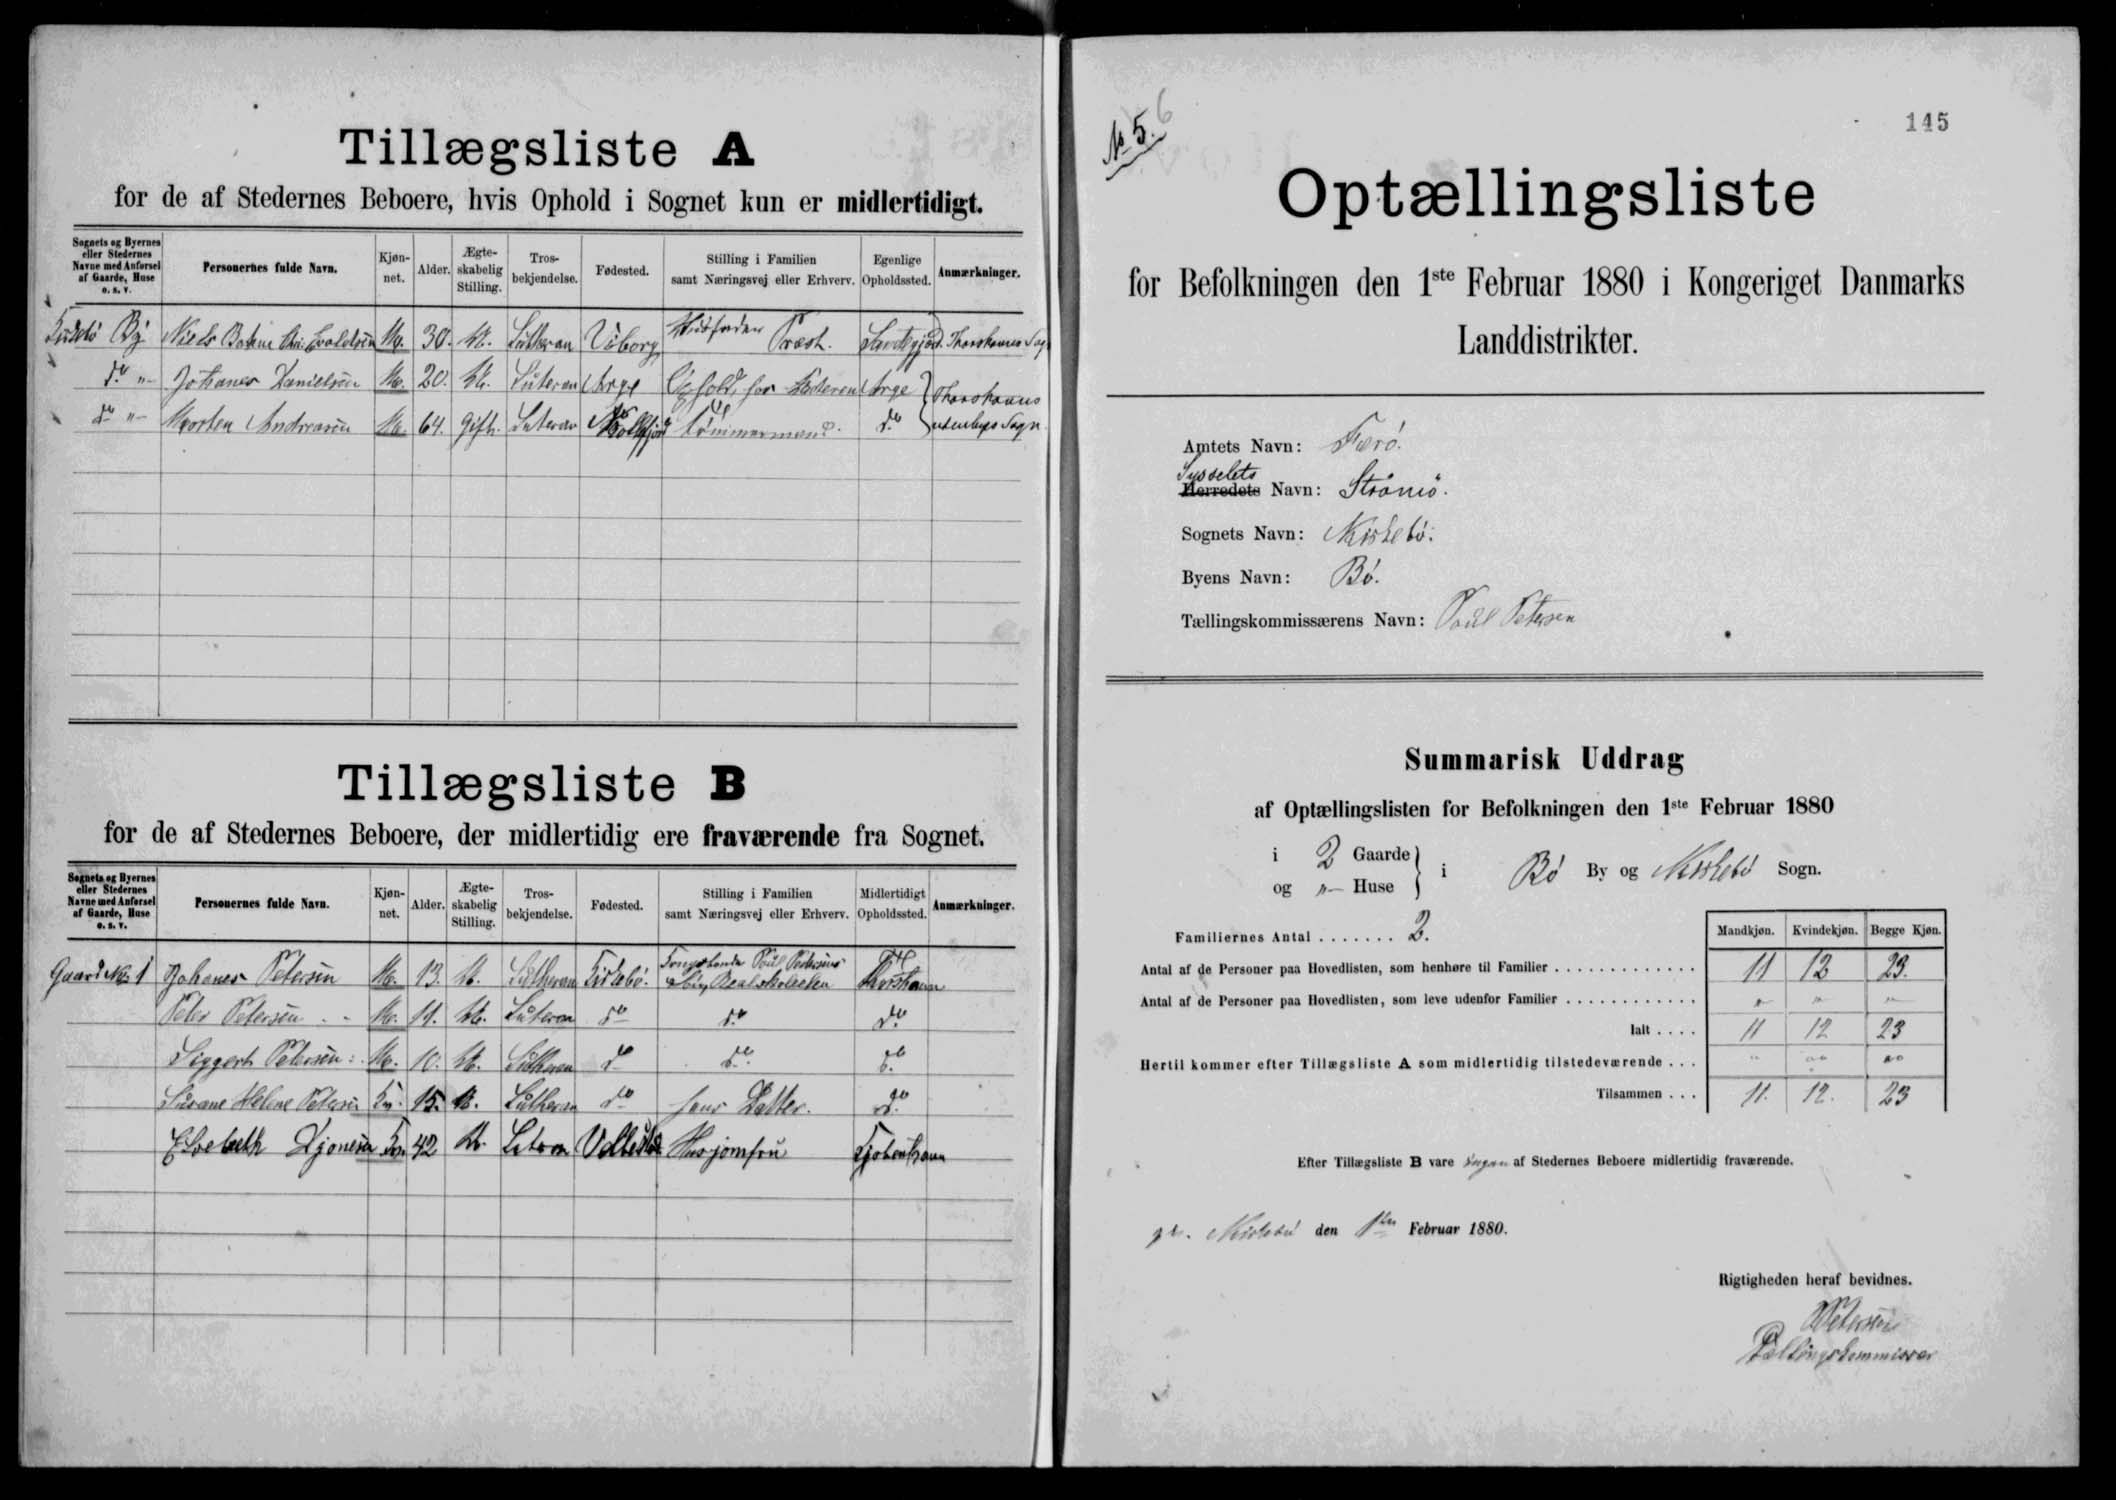 Tillægsliste A
for de af Stedernes Beboere, hvis Ophold i Sognet kun er midlertidigt.
Sognets og Byernes eller Stedernes Navne med Anførsel af Gaarde, Huse o. s. v. Personernes fulde Navn. Kjøn-net. Alder. Ægte-skabelig Stilling. Tros-bekjendelse. Fødested. Stilling i Familien samt Næringsvej eller Erhverv. Egenlige Opholdssted. Anmærkninger.
By Niels M. 30. U. Lutheran Viborg Husfader Præst. Thorshavns Sogn
do " Johanes Danielsen M. 20. U. Luteran Arge Ophold, hos Arge Thorshavns
do " Morten Andreasen M. 64. gift. Luteran Tömmermand. do udenbyes Sogn
Tillægsliste B
for de af Stedernes Beboere, der midlertidig ere fraværende fra Sognet.
Sognets og Byernes eller Stedernes Navne med Anførsel af Gaarde, Huse o. s. v. Personernes fulde Navn. Kjøn-net. Alder. Ægte-skabelig Stilling. Tros-bekjendelse. Fødested. Stilling i Familien samt Næringsvej eller Erhverv. Midlertidigt Opholdssted. Anmærkninger.
Gaard No 1 Johanes Petersen M. 13. U. Lutheran Kirkebö. Poul Petersens Realskolen Thorshavn
Peter Petersen M. 11. U. Luteran do do do
Siggert Petersen M. 10. U. Lutheran do do do
Susane Helene Petersen Kv. 15. U. Lutheran do hans Datter. do
Elsebeth Djonesen Kv. 42 U. Luteran Husjomfru Kjobenhavn
No 5. 6
145
Optællingsliste
for Befolkningen den 1ste Februar 1880 i Kongeriget Danmarks
Landdistrikter.
Amtets Navn: Færö.
Sysselets
Herredets Navn: Strömö.
Sognets Navn: Kirkebö.
Byens Navn: Bö.
Tællingskommissærens Navn: Poul Petersen
Summarisk Uddrag
af Optællingslisten for Befolkningen den 1ste Februar 1880
i 2 Gaarde
og "— Huse
i Bö By og Kirkebö Sogn.
Familiernes Antal . . . . . . . 2.
Mandkjøn. Kvindekjøn. Begge Kjøn.
Antal af de Personer paa Hovedlisten, som henhøre til Familier . . . . . . . . . . . . . 11 12 23.
Antal af de Personer paa Hovedlisten, som leve udenfor Familier . . . . . . . . . . . . " " "
Ialt . . . . 11 12 23
Hertil kommer efter Tillægsliste A som midlertidig tilstedeværende . . . " " "
Tilsammen . . . 11. 12. 23
Efter Tillægsliste B vare Ingen af Stedernes Beboere midlertidig fraværende.
Kirkebö den 1ste Februar 1880.
Rigtigheden heraf bevidnes.
P Petersen
Tællingskommissær